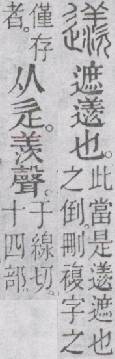 遮也。
此當是遮也
之倒。刪複字之
僅存
者。
从辵。羨聲。
于線切。
十四部